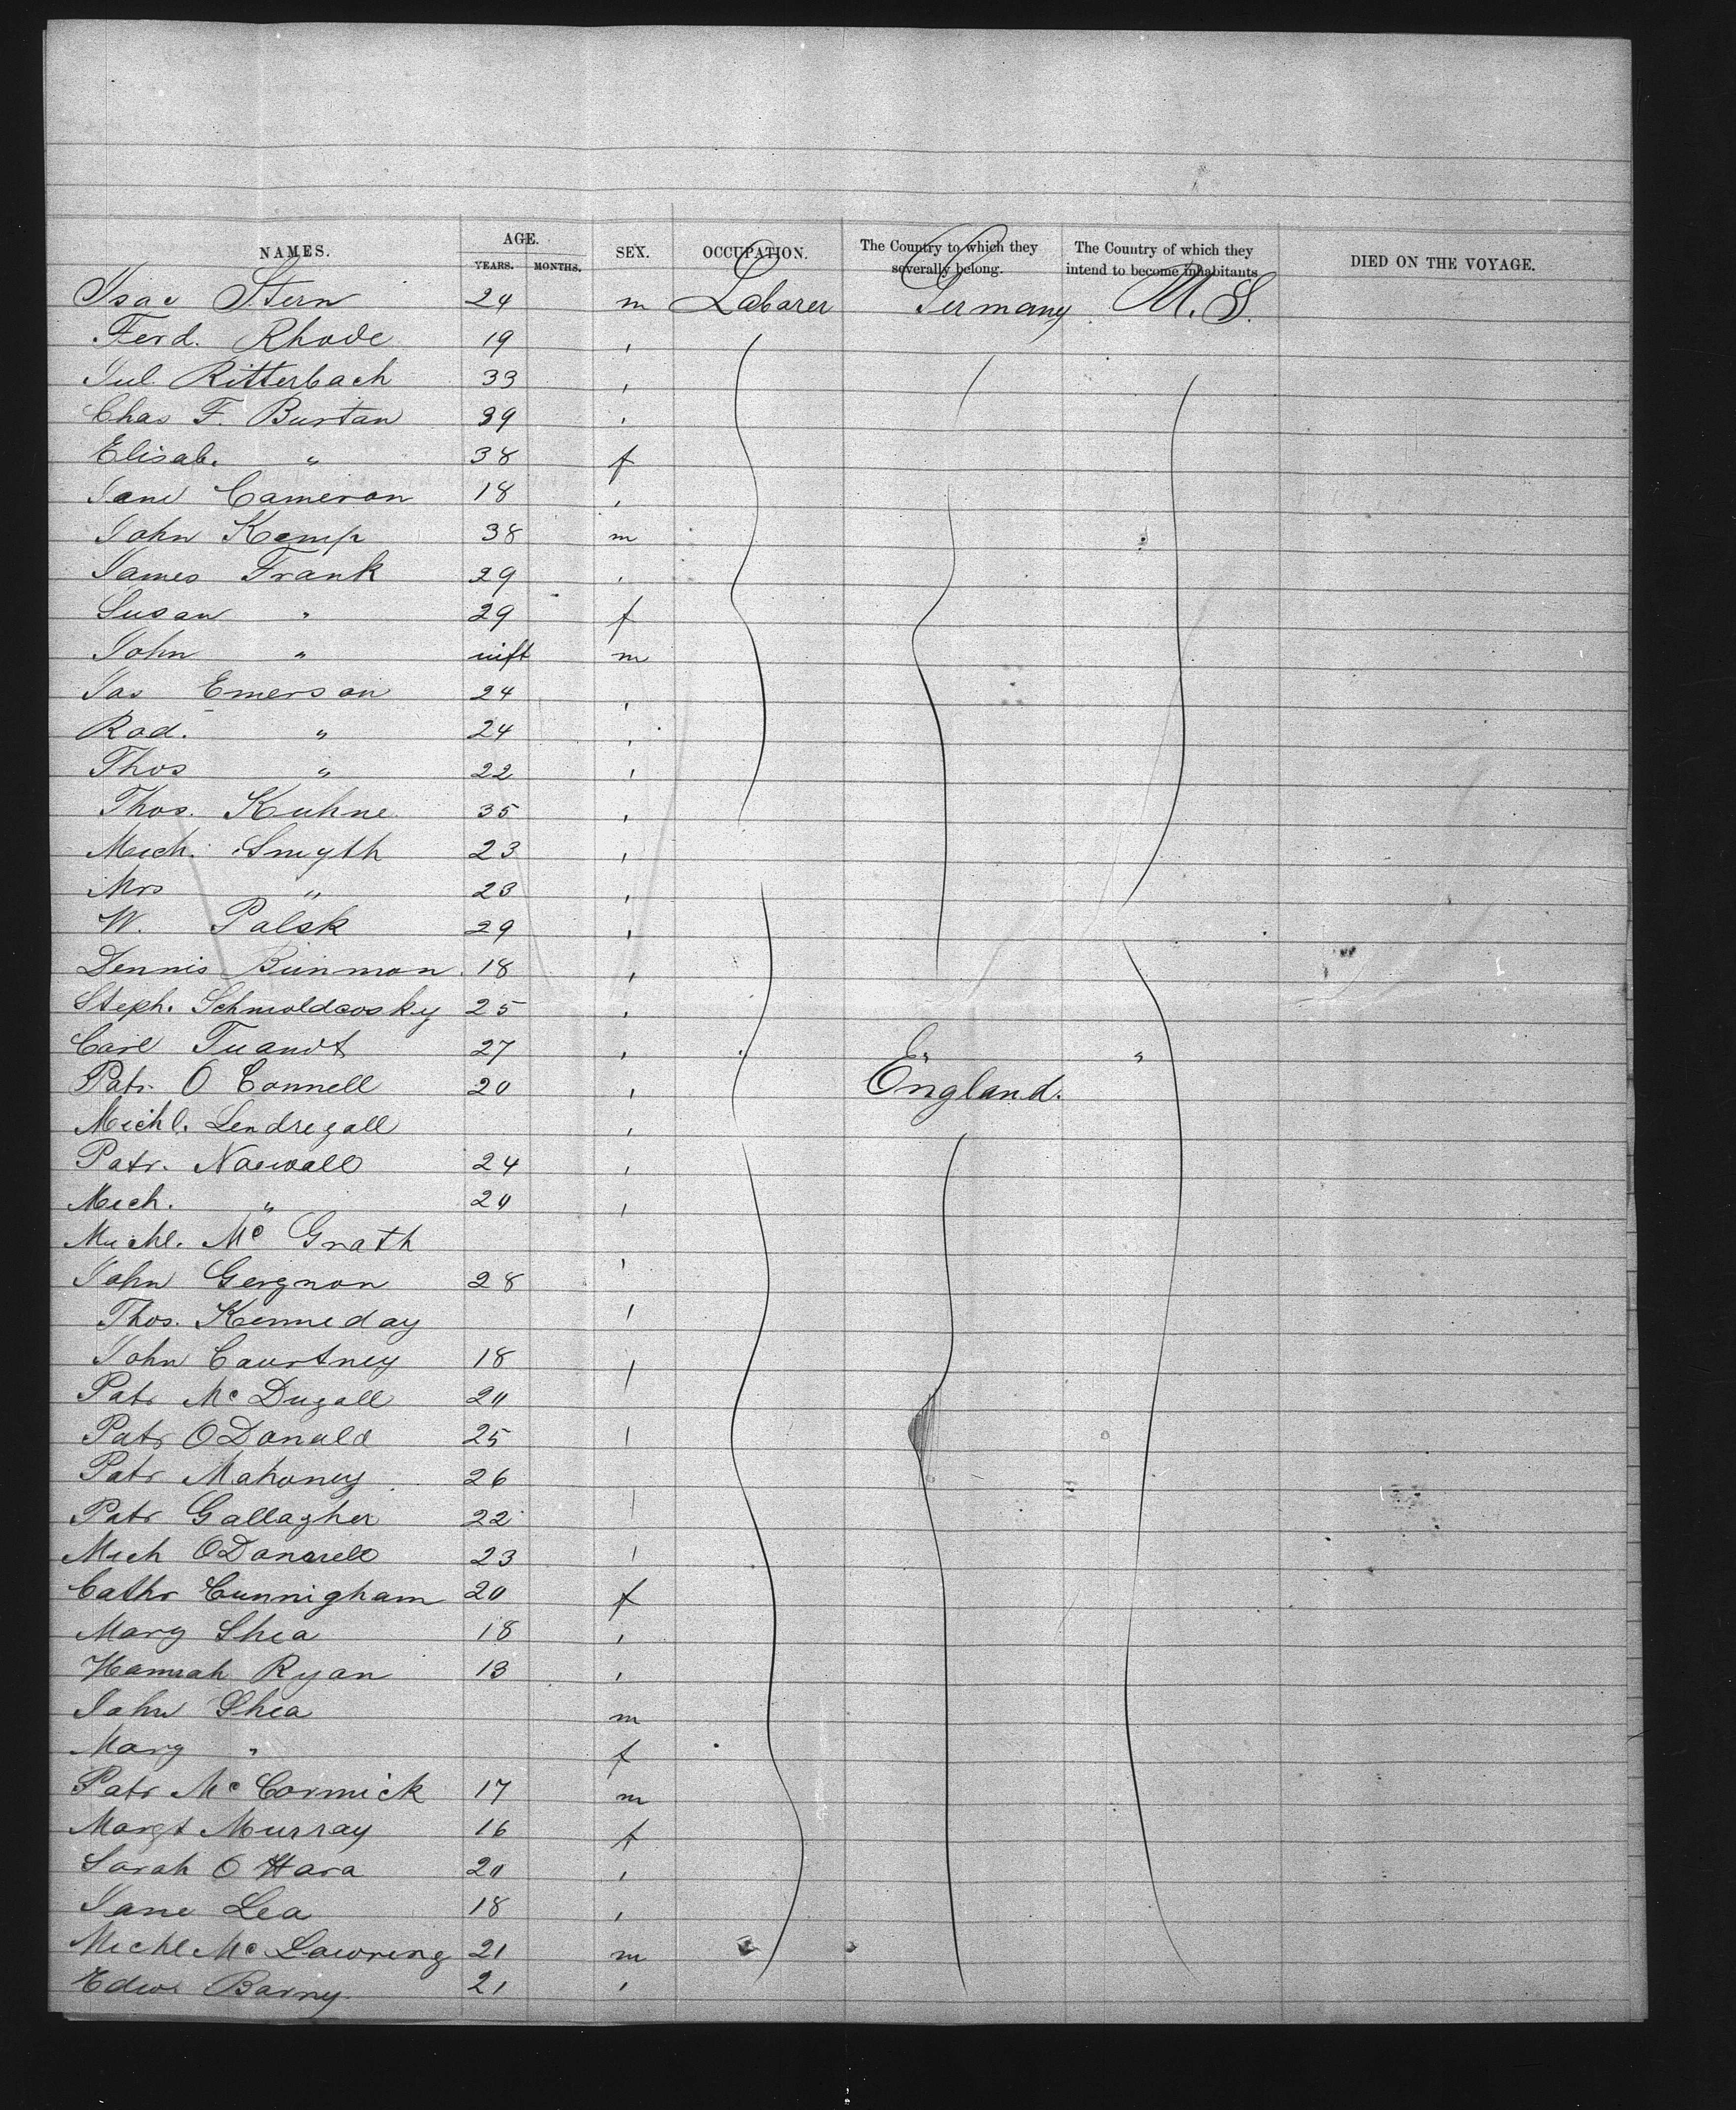 NAMES. AGE. SEX. OCCUPATION. The Country to which they severally belong. The Country of which they intend to become inhabitants DIED ON THE VOYAGE.
YEARS. MONTHS.
Isac Stern 24 m Labarer Germany U.S.
Ferd. Rhode 19 '
Jul. Ritterbach 33 '
Chas F. Burtan 39 '
Elisab. " 38 f
Jane Cameron 18 '
John Kemp 38 m
James Frank 29 '
Susan " 29 f
John " inft m
Jas Emerson 24 '
Rod. " 24 '
Thos " 22 '
Thos. Kuhne 35 '
Mich. Smyth 23 '
Mrs " 23 '
W. Palsk 29 '
Dennis 18 '
Steph. 25 '
Carl 27 ' " "
Patr. O Connell 20 ' England.
Michl. Lendregall '
Patr. 24 '
Mich. " 20 '
Michl. Mc Grath '
John Gergnon 28 '
Thos. Kenneday
John Courtney 18 '
Patr Mc Dugall 20
Patr O Donald 25 '
Patr Mahoney 26
Patr Gallagher 22
Mich 23 '
Cathr Cunnigham 20 f
Mary Shea 18 '
Hannah Ryan 13 '
John Shea m
Mary " f
Patr Mc Cormick 17 m
Margt Murray 16 f
Sarah O Hara 20 '
Jane Lea 18 '
Michl Mc Lawreng 21 m
Edwd Barny 21 '